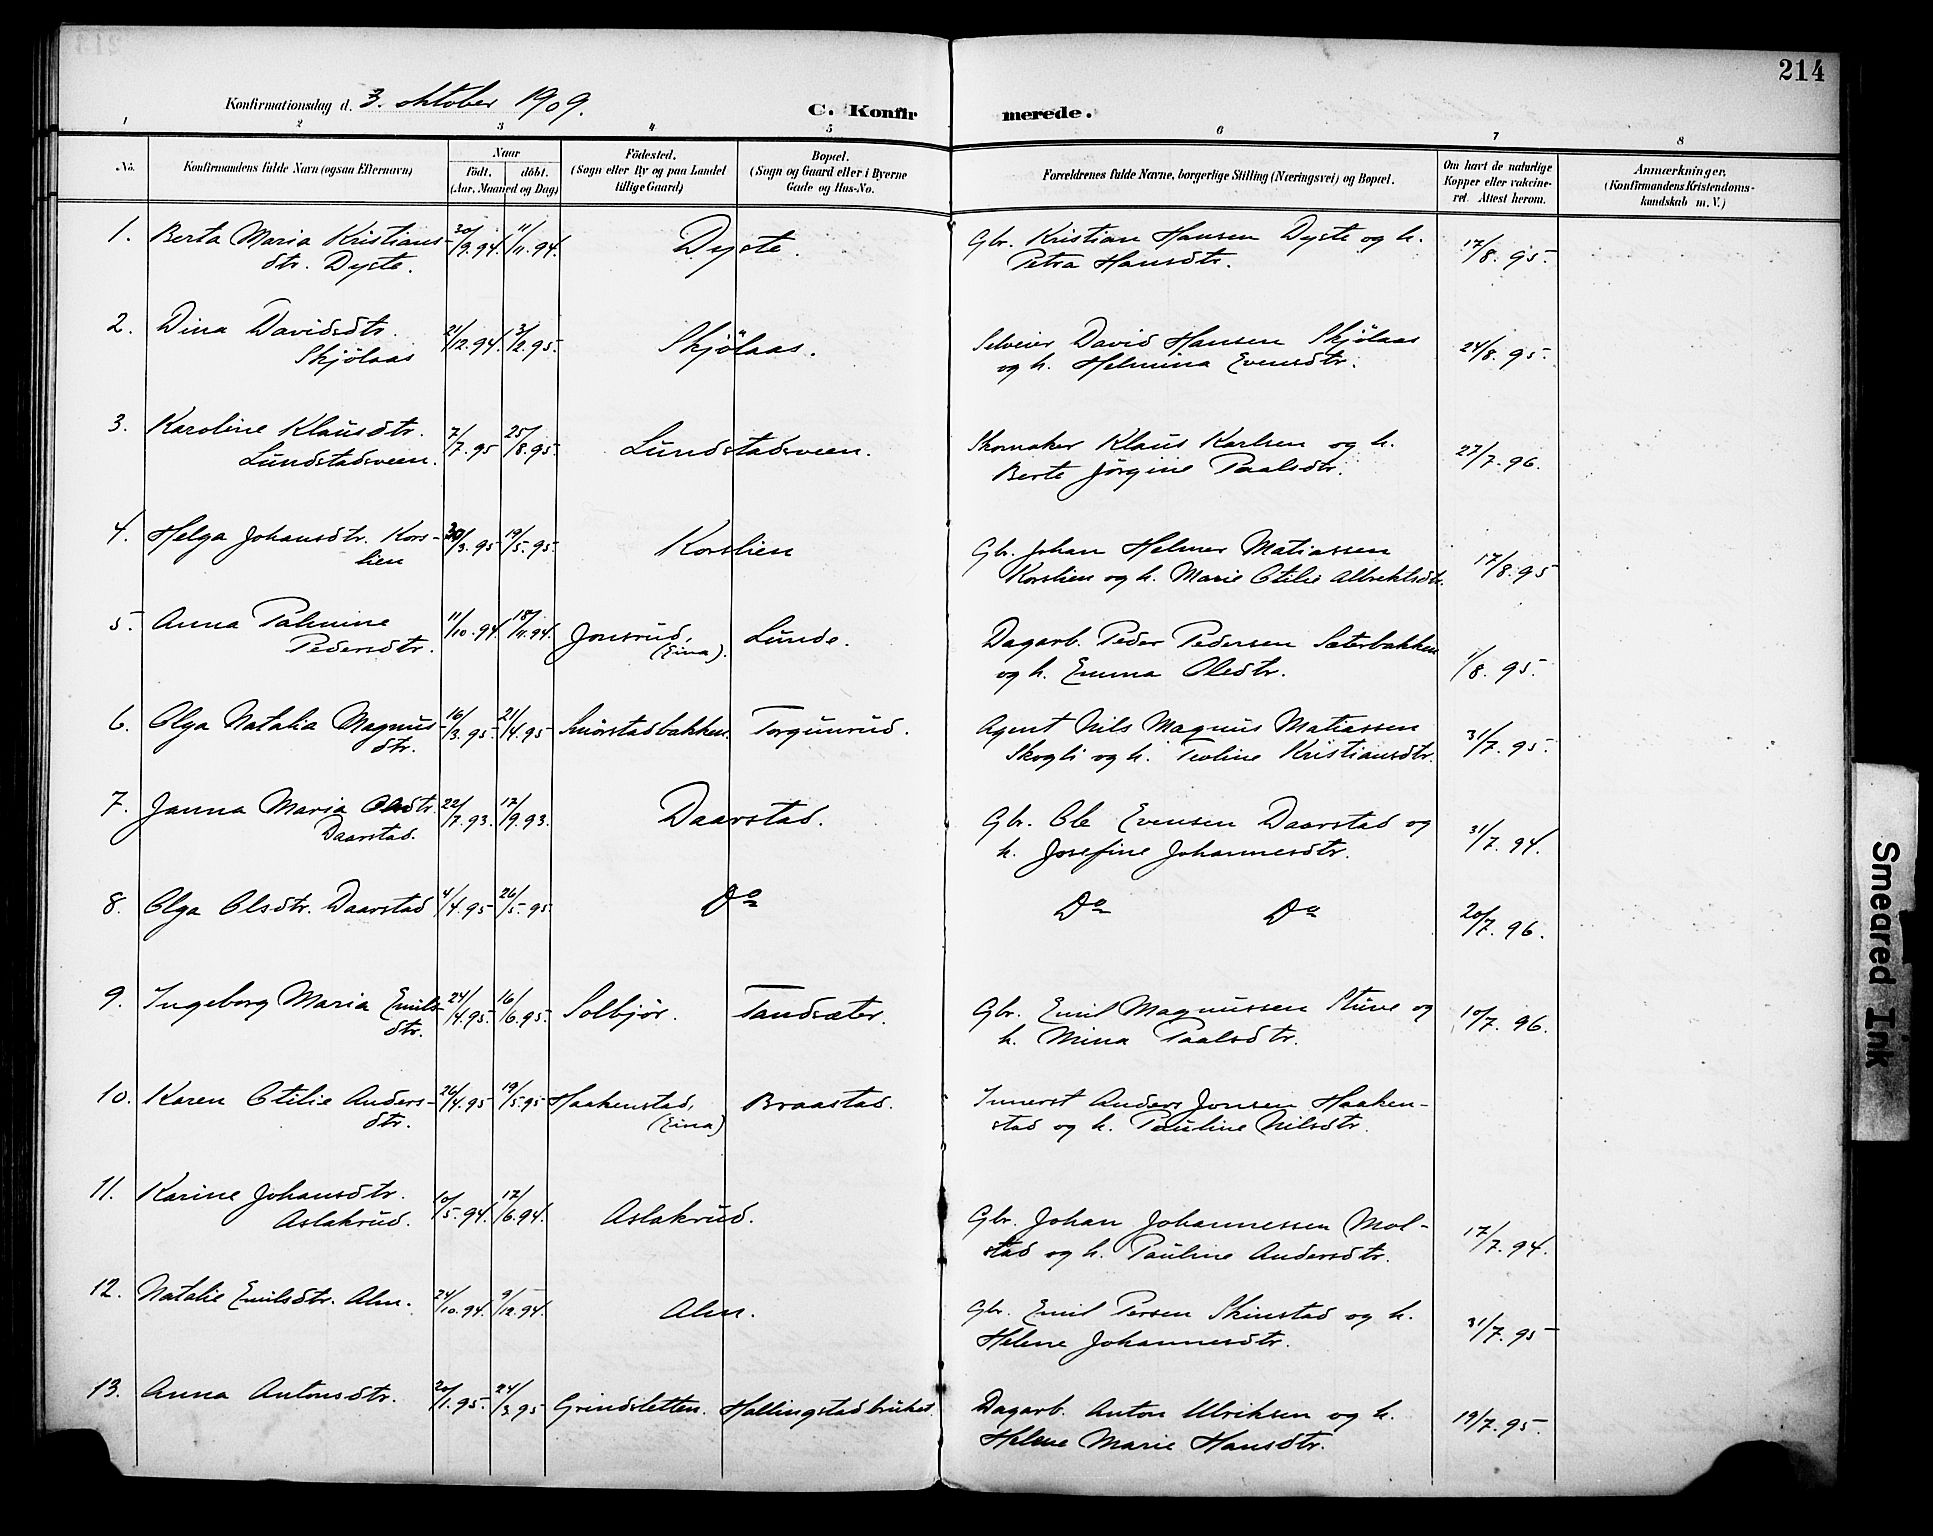 214
Konfirmationsdag d. 3. oktober 1909.
C. Konfirmerede.
1 2 3 4 5 6 7 8
No.
Konfirmandens fulde Navn (ogsaa Efternavn)
Naar
Födt. döbt.
(Aar, Maaned og Dag)
Födested.
(Sogn eller By og paa Landet
tillige Gaard)
Bopæl.
(Sogn og Gaard eller i Byerne
Gade og Hus-No.
Forældrenes fulde Navne, borgerlige Stilling (Næringsvei) og Bopæl.
Om havt de naturlige
Kopper eller vakcine-
ret. Attest herom.
Anmærkninger,
(Konfirmandens Kristendoms-
kundskab m. V.)
1. Berta Maria Kristians- 20/9.94. 11/11.94. Dyste. Gbr. Kristian Hansen Dyste og h. 17/8.95.
dtr. Dyste. Petra Hansdtr.
2. Dina Davidsdtr. 21/12.94. 3/2.95. Skjölaas. Selveier David Hansen Skjölaas 24/8.95.
Skjölaas og h. Helmina Evensdtr.
3. Karoline Klausdtr. 7/7.95 25/8.95. Lundstadsveen. Skomaker Klaus Karlsen og h. 27/7.96.
Lundstadsveen. Berte Jörgine Paalsdtr.
4. Helga Johansdtr. Kors- 30/3.95 19/5.95. Korslien Gbr. Johan Helmer Matiassen 17/8.95
lien Korslien og h. Marie Otilie Albrektsdtr.
5. Anna Palmine 11/10.94 18/11.94. Jonsrud, Lunde. Dagarb. Peder Pedersen Sæterbakken 1/8.95.
Pedersdtr. (Eina). og h. Emma Olsdtr.
6. Olga Natalia Magnus- 16/3.95. 21/4.95 Torgunrud. Agent Nils Magnus Matiassen 31/7.95.
dtr. Skogli og h. Teoline Kristiansdtr.
7. Janna Maria Olsdtr. 22/7.93. 17/9.93. Daarstad. Gbr. Ole Evensen Daarstad og 31/7.94.
Daarstad. h. Josefine Johannesdtr.
8. Olga Olsdtr. Daarstad 4/4.95 26/5.95. Do Do Do 20/7.96.
9. Ingeborg Maria Emils- 24/4.95. 16/6.95. Solbjör. Tandsæter. Gbr. Emil Magnussen Stuve og 10/7.96.
dtr. h. Mina Paalsdtr.
10. Karen Otilie Anders- 26/4.95 19/5.95 Haakenstad, Braastad. Innerst Anders Jonsen Haaken-
dtr. (Eina) stad og h. Pauline Nilsdtr.
11. Karine Johansdtr. 10/5.94. 17/6.94. Aslakrud. Gbr. Johan Johannessen Mol- 17/7.94.
Aslakrud. stad og h. Pauline Andersdtr.
12. Natalie Emilsdtr. Alm. 24/10.94. 9/12.94. Alm. Gbr. Emil Persen Skinstad og h. 31/7.95
Helene Johannesdtr.
13. Anna Antonsdtr. 20/1.95. 24/3.95 Grindsletten. Hallingstadbruket. Dagarb. Anton Ulriksen og h. 19/7.95.
Helene Marie Hansdtr.
Smeared Ink